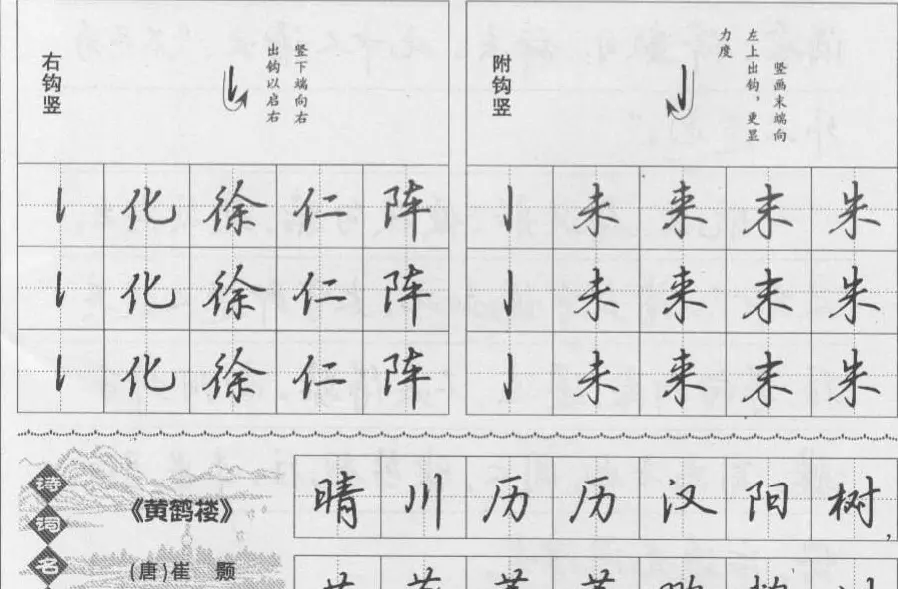 右钩竖
竖下端向右
出钩以启右
附钩竖
竖画末端向
左上出钩，更显
力度
丨 化 徐 仁 阵
丨 化 徐 仁 阵
丨 化 徐 仁 阵
丨 未 来 末 朱
丨 未 来 末 朱
丨 未 来 末 朱
诗词名
《黄鹤楼》
(唐)崔 颢
晴川历历汉阳树,